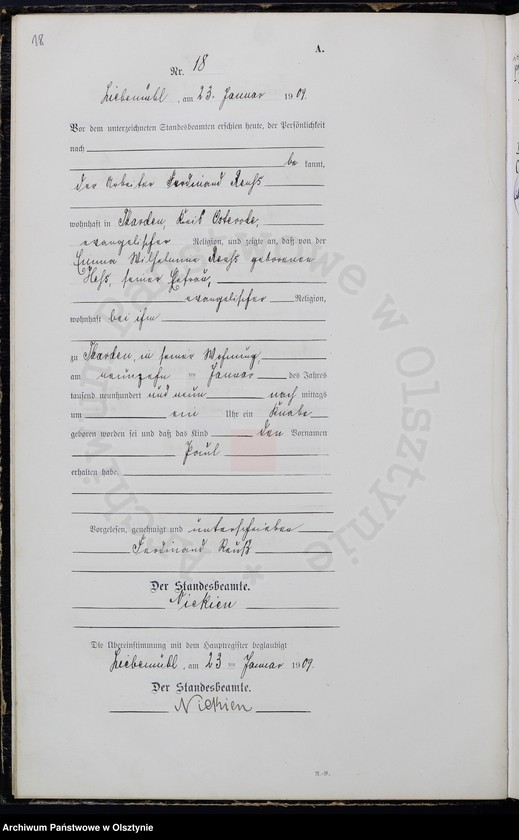 18
A.
Nr. 18
Liebemühl, am 23. Januar 1909.
Vor dem unterzeichneten Standesbeamten erschien heute, der Persönlichkeit
nach
be kannt,
der Arbeiter Ferdinand Reuß
wohnhaft in Tharden, Kreis Osterode,
evangelischer Religion, und zeigte an, daß von der
Emma Wilhelmine Reuß geborenen
Heß, seiner Ehefrau,
evangelischer Religion,
wohnhaft bei ihm
zu Tharden, in seiner Wohnung,
am neunzehn ten Januar des Jahres
tausend neunhundert und neun nach mittags
um ein Uhr ein Knabe
geboren worden sei und daß das Kind den Vornamen
Paul
erhalten habe.
Vorgelesen, genehmigt und unterschrieben
Ferdinand Reuß
Der Standesbeamte.
Nickien
Die Übereinstimmung mit dem Hauptregister beglaubigt
Liebemühl, am 23 ten Januar 1909.
Der Standesbeamte.
Nickien
Archiwum Państwowe w Olsztynie *
Archiwum Państwowe w Olsztynie